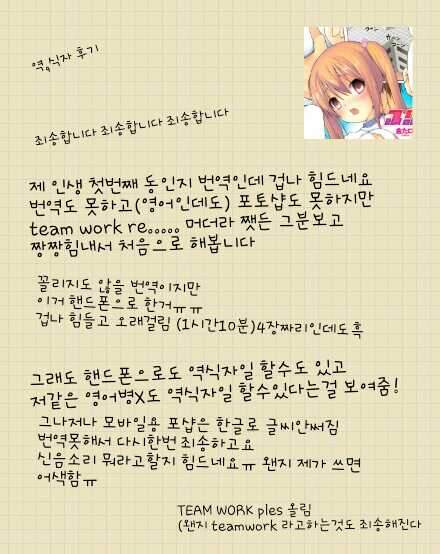 역식자 후기
죄송합니다 죄송합니다 죄송합니다
제 인생 첫번째 동인지 번역인데 겁나 힘드네요
번역도 못하고(영어인데도) 포토샵도 못하지만
team work re。。。。。 머더라 쨋든 그분보고
짱짱힘내서 처음으로 해봅니다
꼴리지도 않을 번역이지만
이거 핸드폰으로 한거ㅠㅠ
겁나 힘들고 오래걸림 (1시간10분)4장짜리인데도흑
그래도 핸드폰으로도 역식자일 할수도 있고
저같은 영어병X도 역식자일 할수있다는걸 보여줌!
그나저나 모바일용 포샵은 한글로 글씨안써짐
번역못해서 다시한번 죄송하고요
신음소리 뭐라고할지 힘드네요ㅠ 왠지 제가 쓰면
어색함ㅠ
TEAM WORK ples 올림
(왠지 teamwork 라고하는것도 죄송해진다